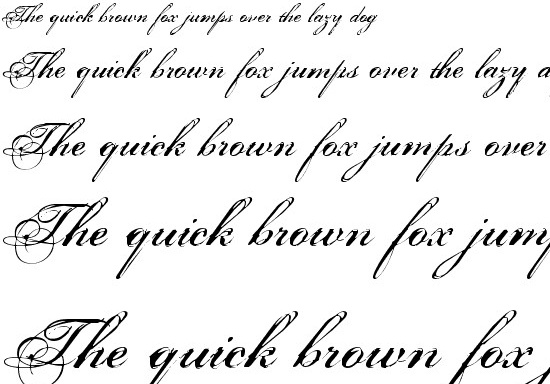 The quick brown fox jumps over the lazy dog
The quick brown fox jumps over the lazy d
The quick brown fox jumps over
The quick brown fox jump
The quick brown fox